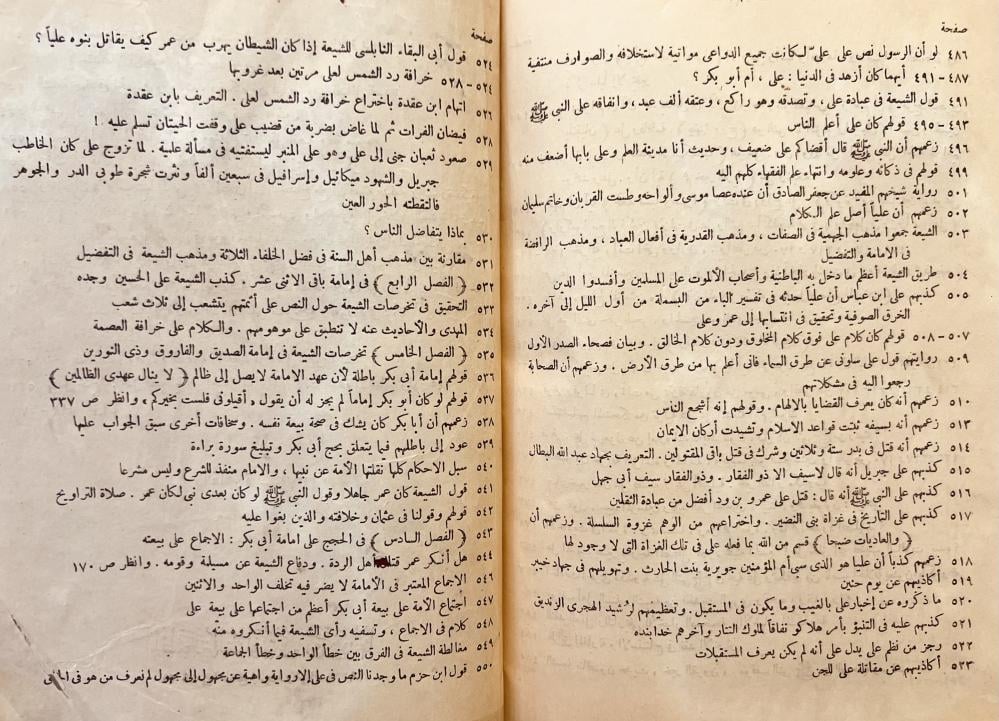 صفحة
٤٨٦ لو أن الرسول نص على علىّ لكانت جميع الدواعى مواتية لاستخلافه والصوارف منتفية
٤٨٧ - ٤٩١ أيهما كان أزهد فى الدنيا : على ، أم أبو بكر ؟
٤٩١ قول الشيعة فى عبادة على ، وتصدقه وهو راكع ، وعتقه ألف عبد ، وانفاقه على النبى ﷺ
٤٩٣ - ٤٩٥ قولهم كان على أعلم الناس
٤٩٦ زعمهم أن النبى ﷺ قال أقضاكم على ضعيف ، وحديث أنا مدينة العلم وعلى بابها أضعف منه
٤٩٩ قولهم فى ذكائه وعلومه وانتهاء علم الفقهاء كلهم اليه
٥٠١ رواية شيخهم المفيد عن جعفر الصادق أن عنده عصا موسى وألواحه وطست القربان وخاتم سليمان
٥٠٢ زعمهم أن علياً أصل علم الكلام
٥٠٣ الشيعة جمعوا مذهب الجهمية فى الصفات ، ومذهب القدرية فى أفعال العباد ، ومذهب الرافضة
فى الامامة والتفضيل
٥٠٤ طريق الشيعة أعظم ما دخل به الباطنية وأصحاب الألموت على المسلمين وأفسدوا الدين
٥٠٥ كذبهم على ابن عباس أن علياً حدثه فى تفسير الباء من البسملة من أول الليل إلى آخره .
الخرق الصوفية وتحقيق فى انتسابها إلى عمر وعلى
٥٠٧ - ٥٠٨ قولهم كان كلام على فوق كلام المخلوق ودون كلام الخالق . وبيان فصحاء الصدر الأول
٥٠٩ روايتهم قول على سلونى عن طرق السماء فانى أعلم بها من طرق الأرض . وزعمهم أن الصحابة
رجعوا اليه فى مشكلاتهم
٥١٠ زعمهم أنه كان يعرف القضايا بالالهام . وقولهم إنه أشجع الناس
٥١٣ زعمهم أنه بسيفه ثبتت قواعد الاسلام وتشيدت أركان الايمان
٥١٤ زعمهم أنه قتل فى بدر ستة وثلاثين وشرك فى قتل باقى المقتولين . التعريف بجهاد عبد الله البطال
٥١٥ كذبهم على جبريل أنه قال لاسيف الا ذو الفقار . وذو الفقار سيف أبى جهل
٥١٦ كذبهم على النبى ﷺ أنه قال : قتل على عمرو بن ود أفضل من عبادة الثقلين
٥١٧ كذبهم على التاريخ فى غزاة بنى النضير . واختراعهم من الوهم غزوة السلسلة . وزعمهم أن
﴿ والعاديات ضبحا ﴾ قسم من الله بما فعله على فى تلك الغزاة التى لا وجود لها
٥١٨ زعمهم كذباً أن عليا هو الذى سبى أم المؤمنين جويرية بنت الحارث . وتهويلهم فى جهاد خيبر
٥١٩ أكاذيبهم عن يوم حنين
٥٢٠ ما ذكروه عن إخبار على بالغيب وما يكون فى المستقبل . وتعظيمهم لرشيد الهجرى الزنديق
٥٢١ كذبهم عليه فى التنبؤ بأمر هلاكو نفاقاً لملوك التتار وآخرهم خدابنده
٥٢٢ رجز من نظم على يدل على أنه لم يكن يعرف المستقبلات
٥٢٣ أكاذيبهم عن مقاتلة على للجن
صفحة
٥٢٤ قول أبى البقاء النابلسى للشيعة إذا كان الشيطان يهرب من عمر كيف يقاتل بنوه علياً ؟
٥٢٤ - ٥٢٨ خرافة رد الشمس لعلى مرتين بعد غروبها
٥٢٦ اتهام ابن عقدة باختراع خرافة رد الشمس لعلى . التعريف بابن عقدة
٥٢٨ فيضان الفرات ثم لما غاض بضربة من قضيب على وقفت الحيتان تسلم عليه !
٥٢٩ صعود ثعبان جنى إلى على وهو على المنبر ليستفتيه فى مسألة علمية . لما تزوج على كان الخاطب
جبريل والشهود ميكائيل وإسرافيل فى سبعين ألفاً ونثرت شجرة طوبى الدر والجوهر
فالتقطته الحور العين
٥٣٠ بماذا يتفاضل الناس ؟
٥٣١ مقارنة بين مذهب أهل السنة فى فضل الخلفاء الثلاثة ومذهب الشيعة فى التفضيل
٥٣٢ ﴿ الفصل الرابع ﴾ فى إمامة باقى الاثنى عشر . كذب الشيعة على الحسين وجده
٥٣٣ التحقيق فى تخرصات الشيعة حول النص على أئمتهم يتشعب إلى ثلاث شعب
٥٣٤ المهدى والأحاديث عنه لا تنطبق على موهومهم . والكلام على خرافة العصمة
٥٣٥ ﴿ الفصل الخامس ﴾ تخرصات الشيعة فى إمامة الصديق والفاروق وذى النورين
٥٣٦ قولهم إمامة أبى بكر باطلة لأن عهد الامامة لا يصل إلى ظالم ﴿ لا ينال عهدى الظالمين ﴾
٥٣٧ قولهم لو كان أبو بكر إماماً لم يجز له أن يقول « أقيلونى فلست بخيركم » وانظر ص ٣٣٧
٥٣٨ زعمهم أن أبا بكر كان يشك فى صحة بيعة نفسه . وسخافات أخرى سبق الجواب عليها
٥٣٩ عود إلى باطلهم فيما يتعلق بحج أبى بكر وتبليغ سورة براءة
٥٤٠ سبيل الاحكام كلها نقلتها الأمة عن نبيها ، والامام منفذ للشرع وليس مشرعا
٥٤١ قول الشيعة كان عمر جاهلا وقول النبى ﷺ لو كان بعدى نبى لكان عمر . صلاة التراويح
٥٤٢ قولهم وقولنا فى عثمان وخلافته والذين بغوا عليه
٥٤٣ ﴿ الفصل السادس ﴾ فى الحجج على امامة أبى بكر : الاجماع على بيعته
٥٤٤ هل أنكر عمر قتال أهل الردة . ودفاع الشيعة عن مسيلمة وقومه . وانظر ص ١٧٠
٥٤٦ الاجماع المعتبر فى الأمامة لا يضر فيه تخلف الواحد والاثنين
٥٤٧ اجتماع الأمة على بيعة أبى بكر أعظم من اجتماعها على بيعة على
٥٤٨ كلام فى الاجماع ، وتسفيه رأى الشيعة فيما أنكروه منه
٥٤٩ مغالطة الشيعة فى الفرق بين خطأ الواحد وخطأ الجماعة
٥٥٠ قول ابن حزم ما وجدنا النص فى على إلا رواية واهية عن مجهول إلى مجهول لم نعرف من هو فى